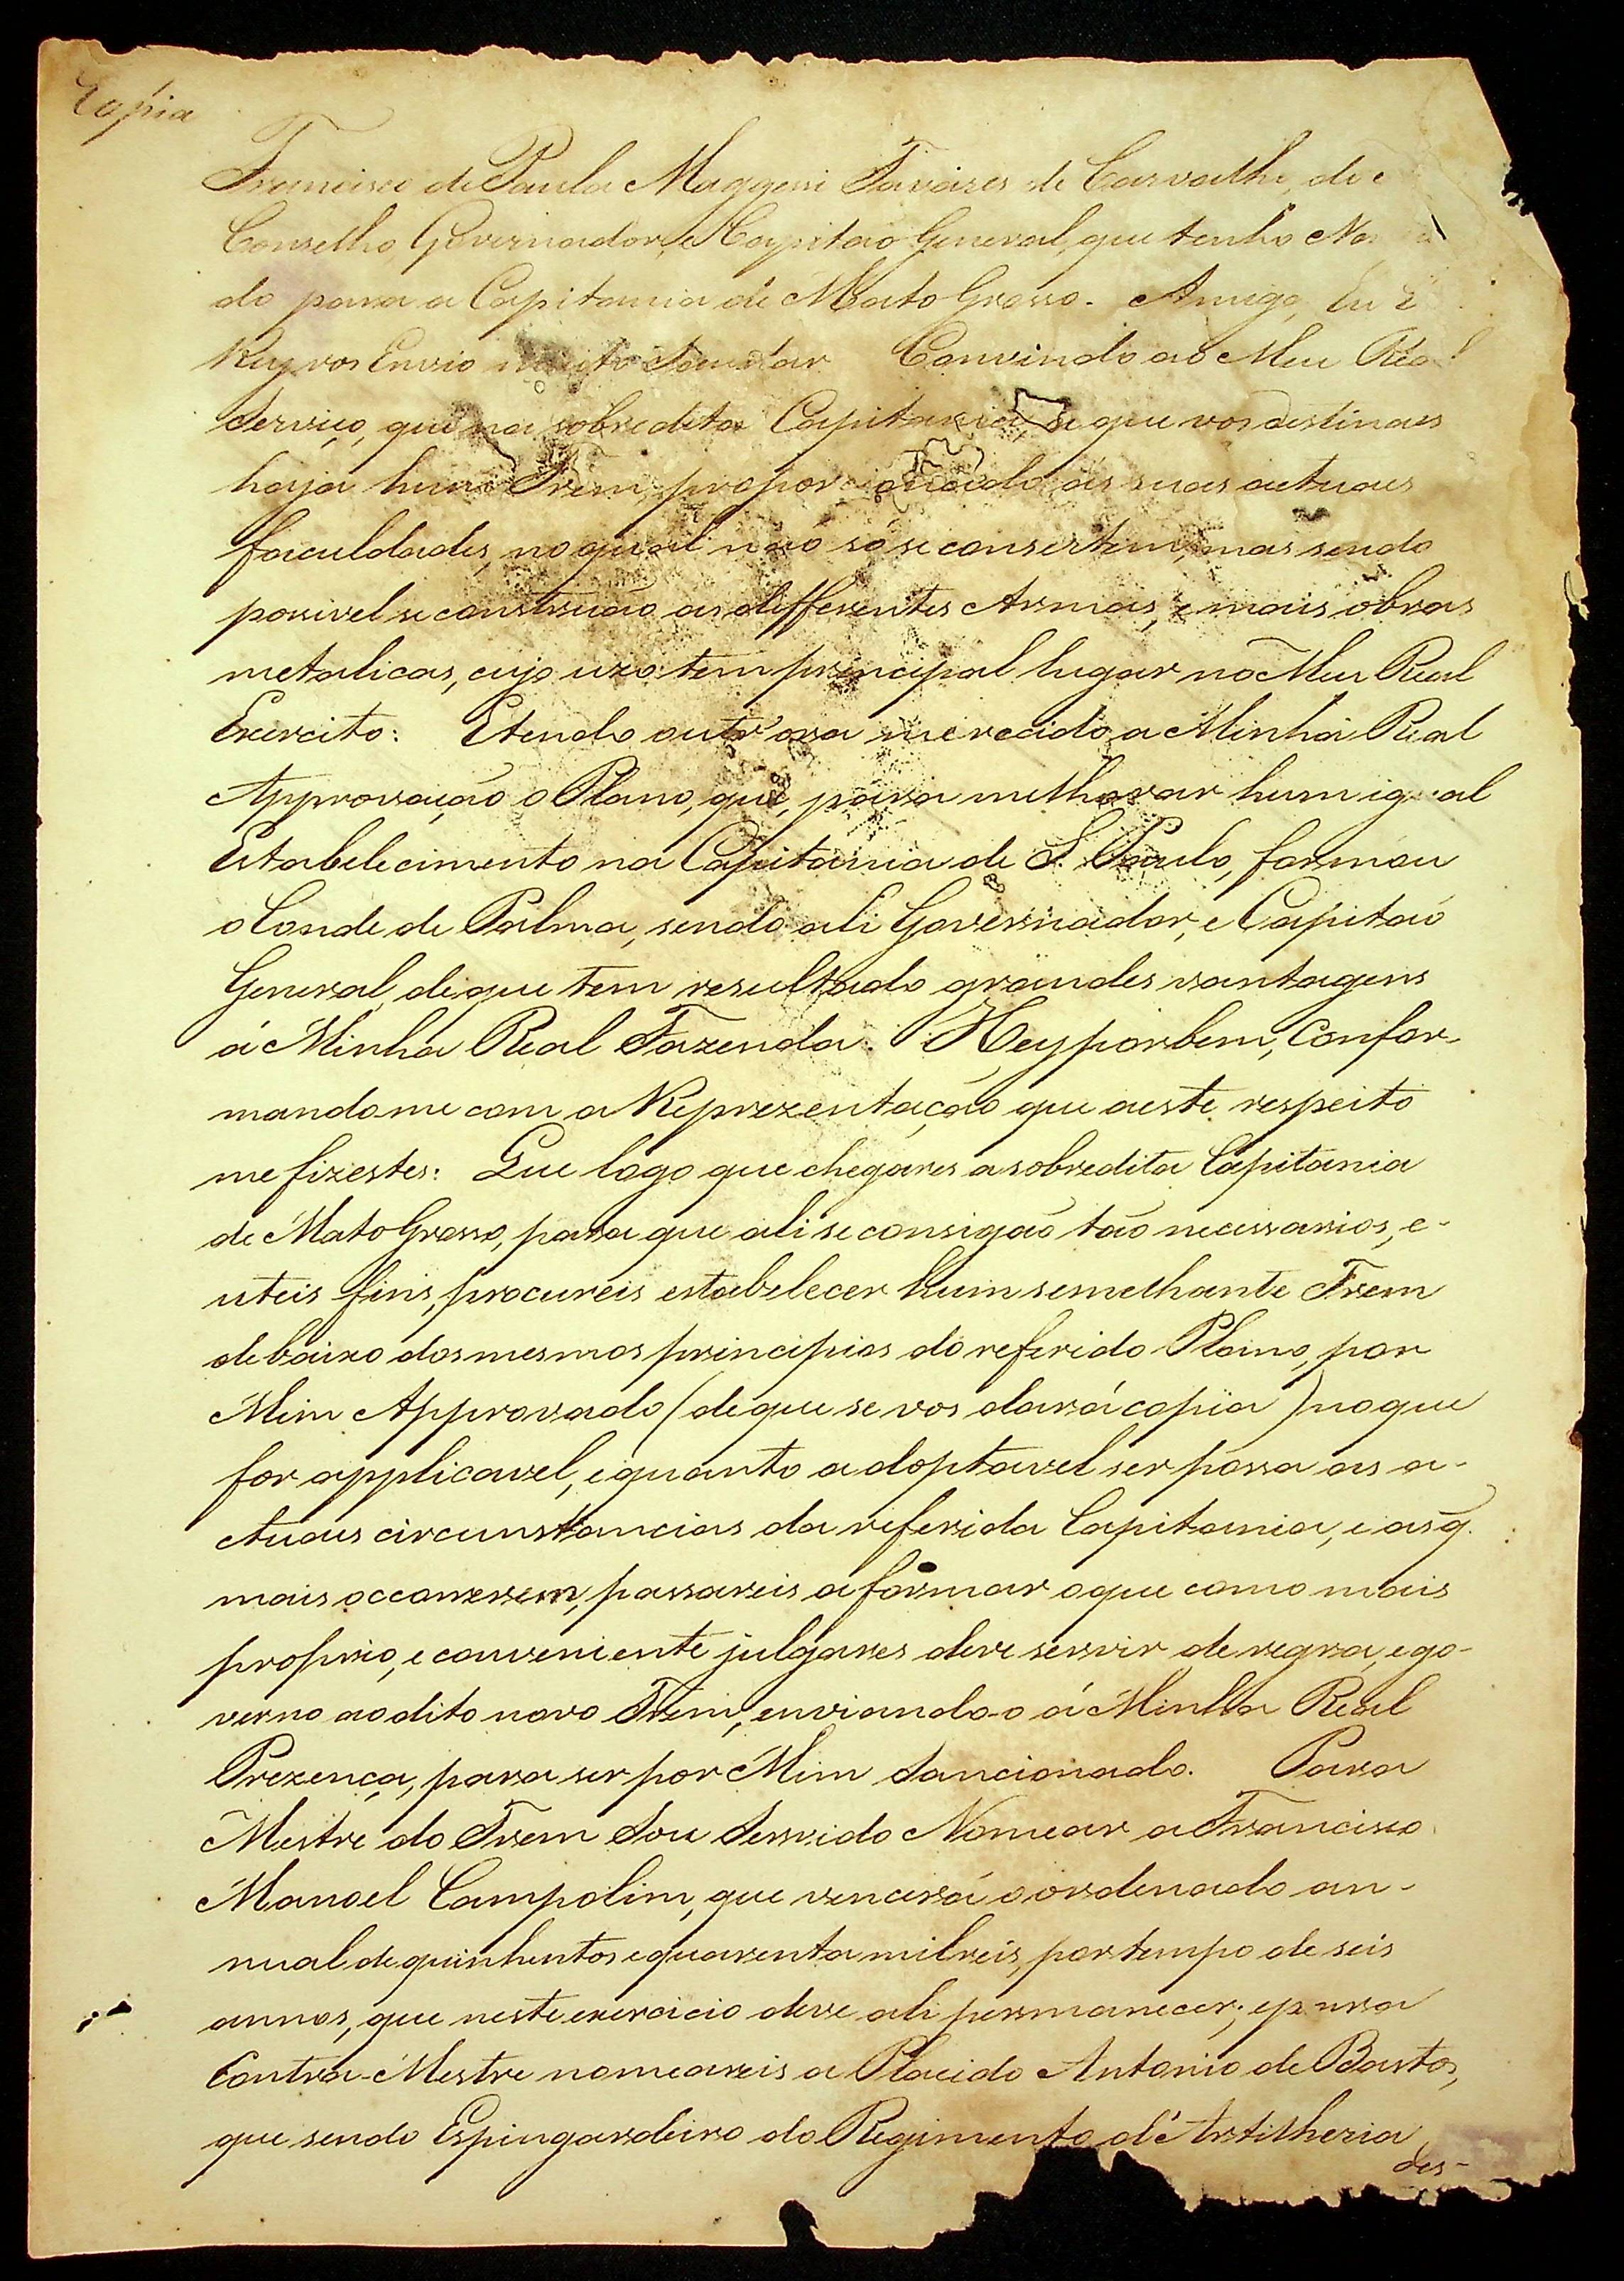 Copia
Francisco de Paula Maggessi Tavares de Carvalho, do
Conselho, Governador, e Capitão General, que tenho No
do para a Capitania de Mato Grosso. Amigo, Eu
Rey vos Envio muito Saudar Convindo ao Meu Real
Serviço, que na sobredita Capitania, a que vos destinaes
haja hum Trem, proporcionado ás suas actuaes
faculdades, no qual naó só se consertem, mas sendo
possivel se construão as differentes Armas, e mais obras
metalicas, cujo uzo tem principal lugar no Meu Real
Exercito: E tendo outr'ora merecido a Minha Real
Approvação o Plano, que, para melhorar hum igual
Estabelecimento na Capitania de S. Paulo, formou
o Conde de Palma, sendo ali Governador, e Capitaó
General, de que tem resultado grandes vantagens
á Minha Real Fazenda. Hey por bem, Confor-
mandome com a Reprezentação que a este respeito
me fizestes: Que logo que chegares a sobredita Capitania
de Mato Grosso, para que ali se consigaõ tão necessarios, e-
uteis fins, procureis estabelecer hum semelhante Trem
debaixo dos mesmos principios do referido Plano, por
Mim Approvado (de que se vos dará copia) no que
for applicavel, e quanto adoptavel ser possa as a-
ctuaes circunstancias da referida Capitania, e as q̃.
mais occorrerem, passareis a formar o que como mais
proprio, e conveniente julgares deve servir de regra, e go-
verno ao dito novo Trem, enviando-o á Minha Real
Prezença, para ser por Mim Sancionado. Para
Mestre do Trem Sou Servido Nomear a Francisco
Manoel Campolim, que vencerá o ordenado an-
nual de quinhentos e quarenta mil reis, por tempo de seis
annos, que neste exercicio deve ali permanecer; e para
Contra-Mestre nomeareis a Placido Antonio de Bastos,
que sendo Espingardeiro do Regimento d'Artilheria
des-